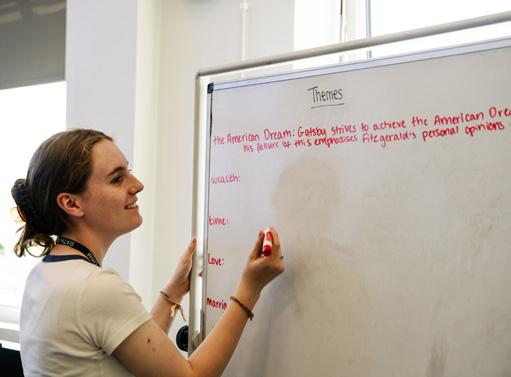 Themes
the American Dream: Gatsby strives to achieve the American
his failure of this emphasises Fitzgerald's personal opinions
wealth:
time:
Love:
SIXTH